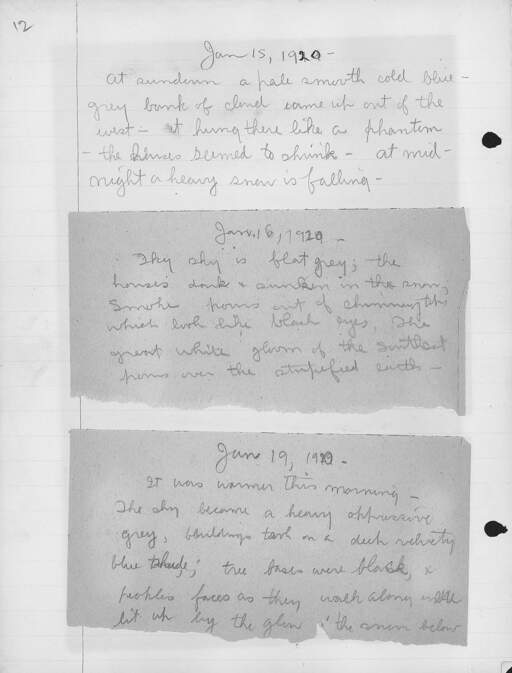 12
Jan 15, 1920 -
At sundown a pale smooth cold blue-
grey bank of cloud came up out of the
west - it hung there like a phantom
- the houses seemed to shrink - at mid-
night a heavy snow is falling -
Jan. 16, 1920 -
The sky is flat grey; the
houses dark & sunken in the snow,
Smoke pours out of chimney
which look like black eyes, The
great white gloom of the
pours over the stupefied earth -
Jan 19, 1920 -
It was warmer this morning -
The sky became a heavy oppressive
grey, buildings took on a velvety
blue tree bases were black, &
people's faces as they walk along
lit up by the glow the snow below